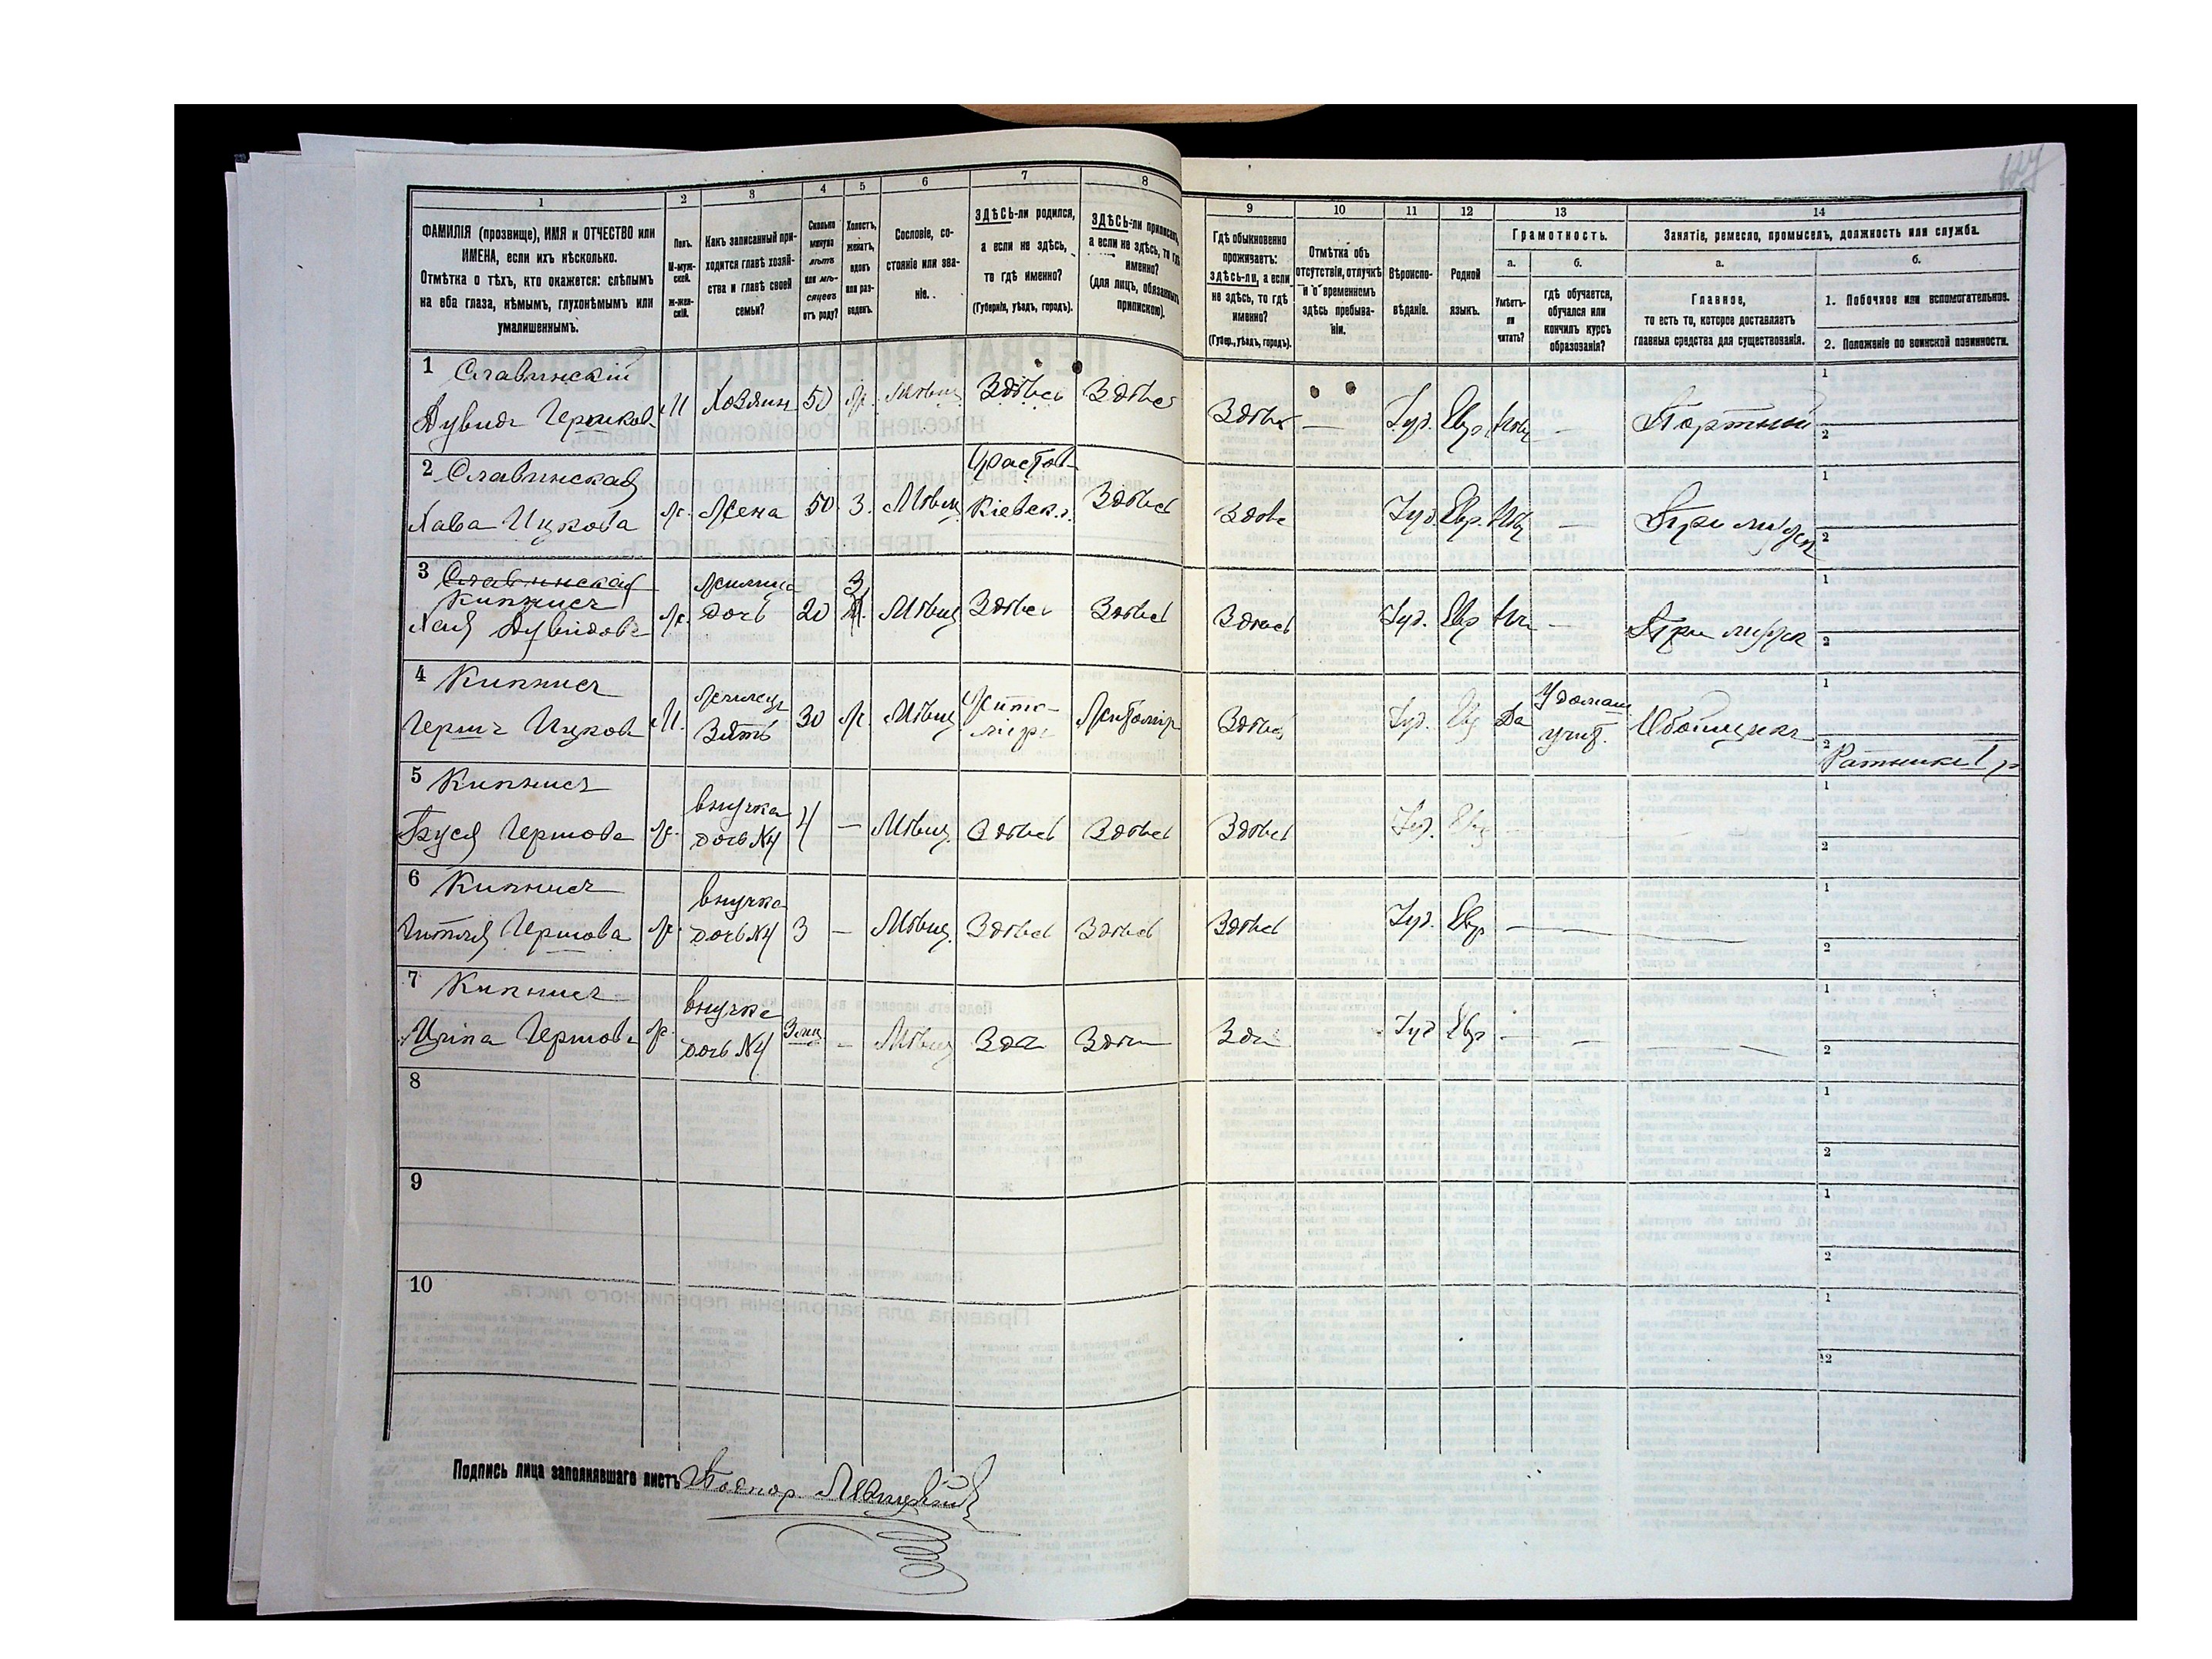 127
1 2 3 4 5 6 7 8
ФАМИЛІЯ (прозвище), ИМЯ и ОТЧЕСТВО или ИМЕНА, если ихъ нѣсколько.
Отмѣтка о тѣхъ, кто окажется: слѣпымъ на оба глаза, нѣмымъ, глухонѣмымъ или умалишеннымъ.
Полъ. М-мужской. Ж-женскій.
Какъ записанный приходится главѣ хозяйства и главѣ своей семьи?
Сколько минуло лѣтъ или мѣсяцевъ отъ роду?
Холостъ, женатъ, вдовъ или разведенъ.
Сословіе, состояніе или званіе.
ЗДѢСЬ-ли родился, а если не здѣсь, то гдѣ именно?
(Губернія, уѣздъ, городъ).
ЗДѢСЬ-ли приписанъ, а если не здѣсь, то гдѣ именно?
(для лицъ, обязанныхъ припискою).
9 10 11 12 13 14
Гдѣ обыкновенно проживаетъ: здѣсь-ли, а если не здѣсь, то гдѣ именно?
(Губер., уѣздъ, городъ).
Отмѣтка объ отсутствіи, отлучкѣ и о временномъ здѣсь пребываніи.
Вѣроисповѣданіе.
Родной языкъ.
Грамотность.
а. Умѣетъ-ли читать?
б. гдѣ обучается, обучался или кончилъ курсъ образованія?
Занятіе, ремесло, промыселъ, должность или служба.
а. Главное, то есть то, которое доставляетъ главныя средства для существованія.
б.
1. Побочное или вспомогательное.
2. Положеніе по воинской повинности.
1 Славинскій
Дувидъ Гершков. М Хозяин 50 Ж. Мѣщ. Здѣсь Здѣсь Здѣсь — Іуд. Евр Нѣт — Портной
1
2
2 Славинская
Хава Ицкова Ж. Жена 50 З. Мѣщ Фастов Кіевск. г. Здѣсь Здѣсь Іуд Евр. Нѣт — При мужѣ
1
2
3 Славинская
Кипнисъ
Хая Дувидова Ж. Жилица дочь 20 З. Мѣщ Здѣсь Здѣсь Здѣсь Іуд. Евр — При мужѣ
1
2
4 Кипнисъ
Гершъ Ицков М. Жилецъ Зять 30 Ж. Мѣщ Житомiръ Житомiр Здѣсь Іуд. Да У домаш учит. Обойщикъ
1
2 Ратникъ 1 р
5 Кипнисъ
Бруся Гершова Ж. внучка дочь №4 4 — Мѣщ. Здѣсь Здѣсь Здѣсь Іуд. Евр —
1
2
6 Кипнисъ
Гитля Гершова Ж. внучка дочь №4 3 — Мѣщ. Здѣсь Здѣсь Здѣсь Іуд. Евр —
1
2
7 Кипнисъ
Гершова Ж. внучка дочь №4 3 мц — Мѣщ Зд Здѣ Здѣ Іуд Евр — —
1
2
8
1
2
9
1
2
10
1
2
Подпись лица заполнявшаго листъ